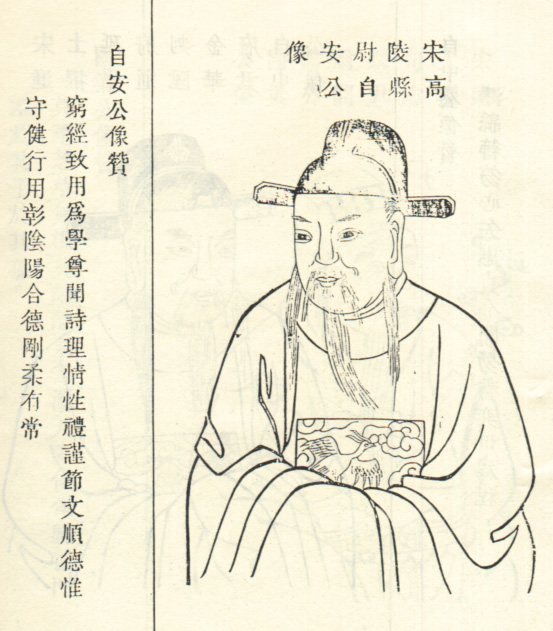 宋高
陵縣
尉自
安公
像
自安公像贊
窮經致用爲學尊聞詩理情性禮謹節文順德惟
守健行用彰陰陽合德剛柔有常